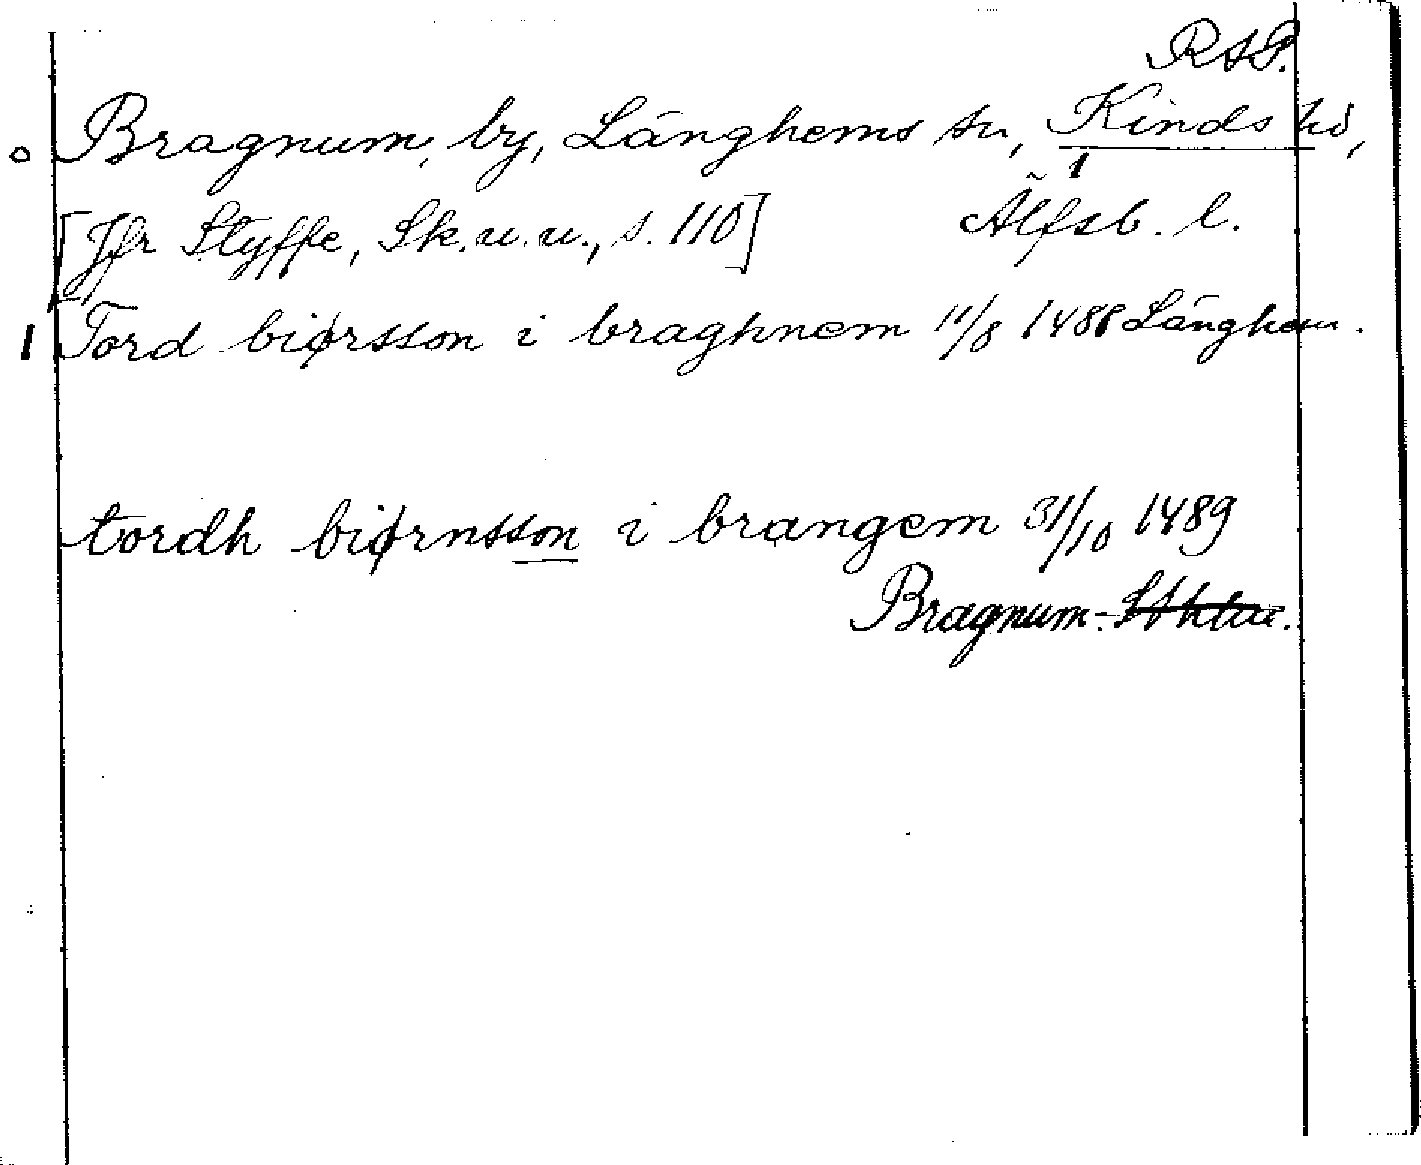 RAP.
Bragnum, by, Länghems sn, Kinds hd,
[Jfr Styffe, Sk.u.u., s. 110] Älfsb. l.
Tord biørsson i braghnem 11/8 1488 Länghem.
tordh biørnsson i brangem 31/10 1489
Bragnum.